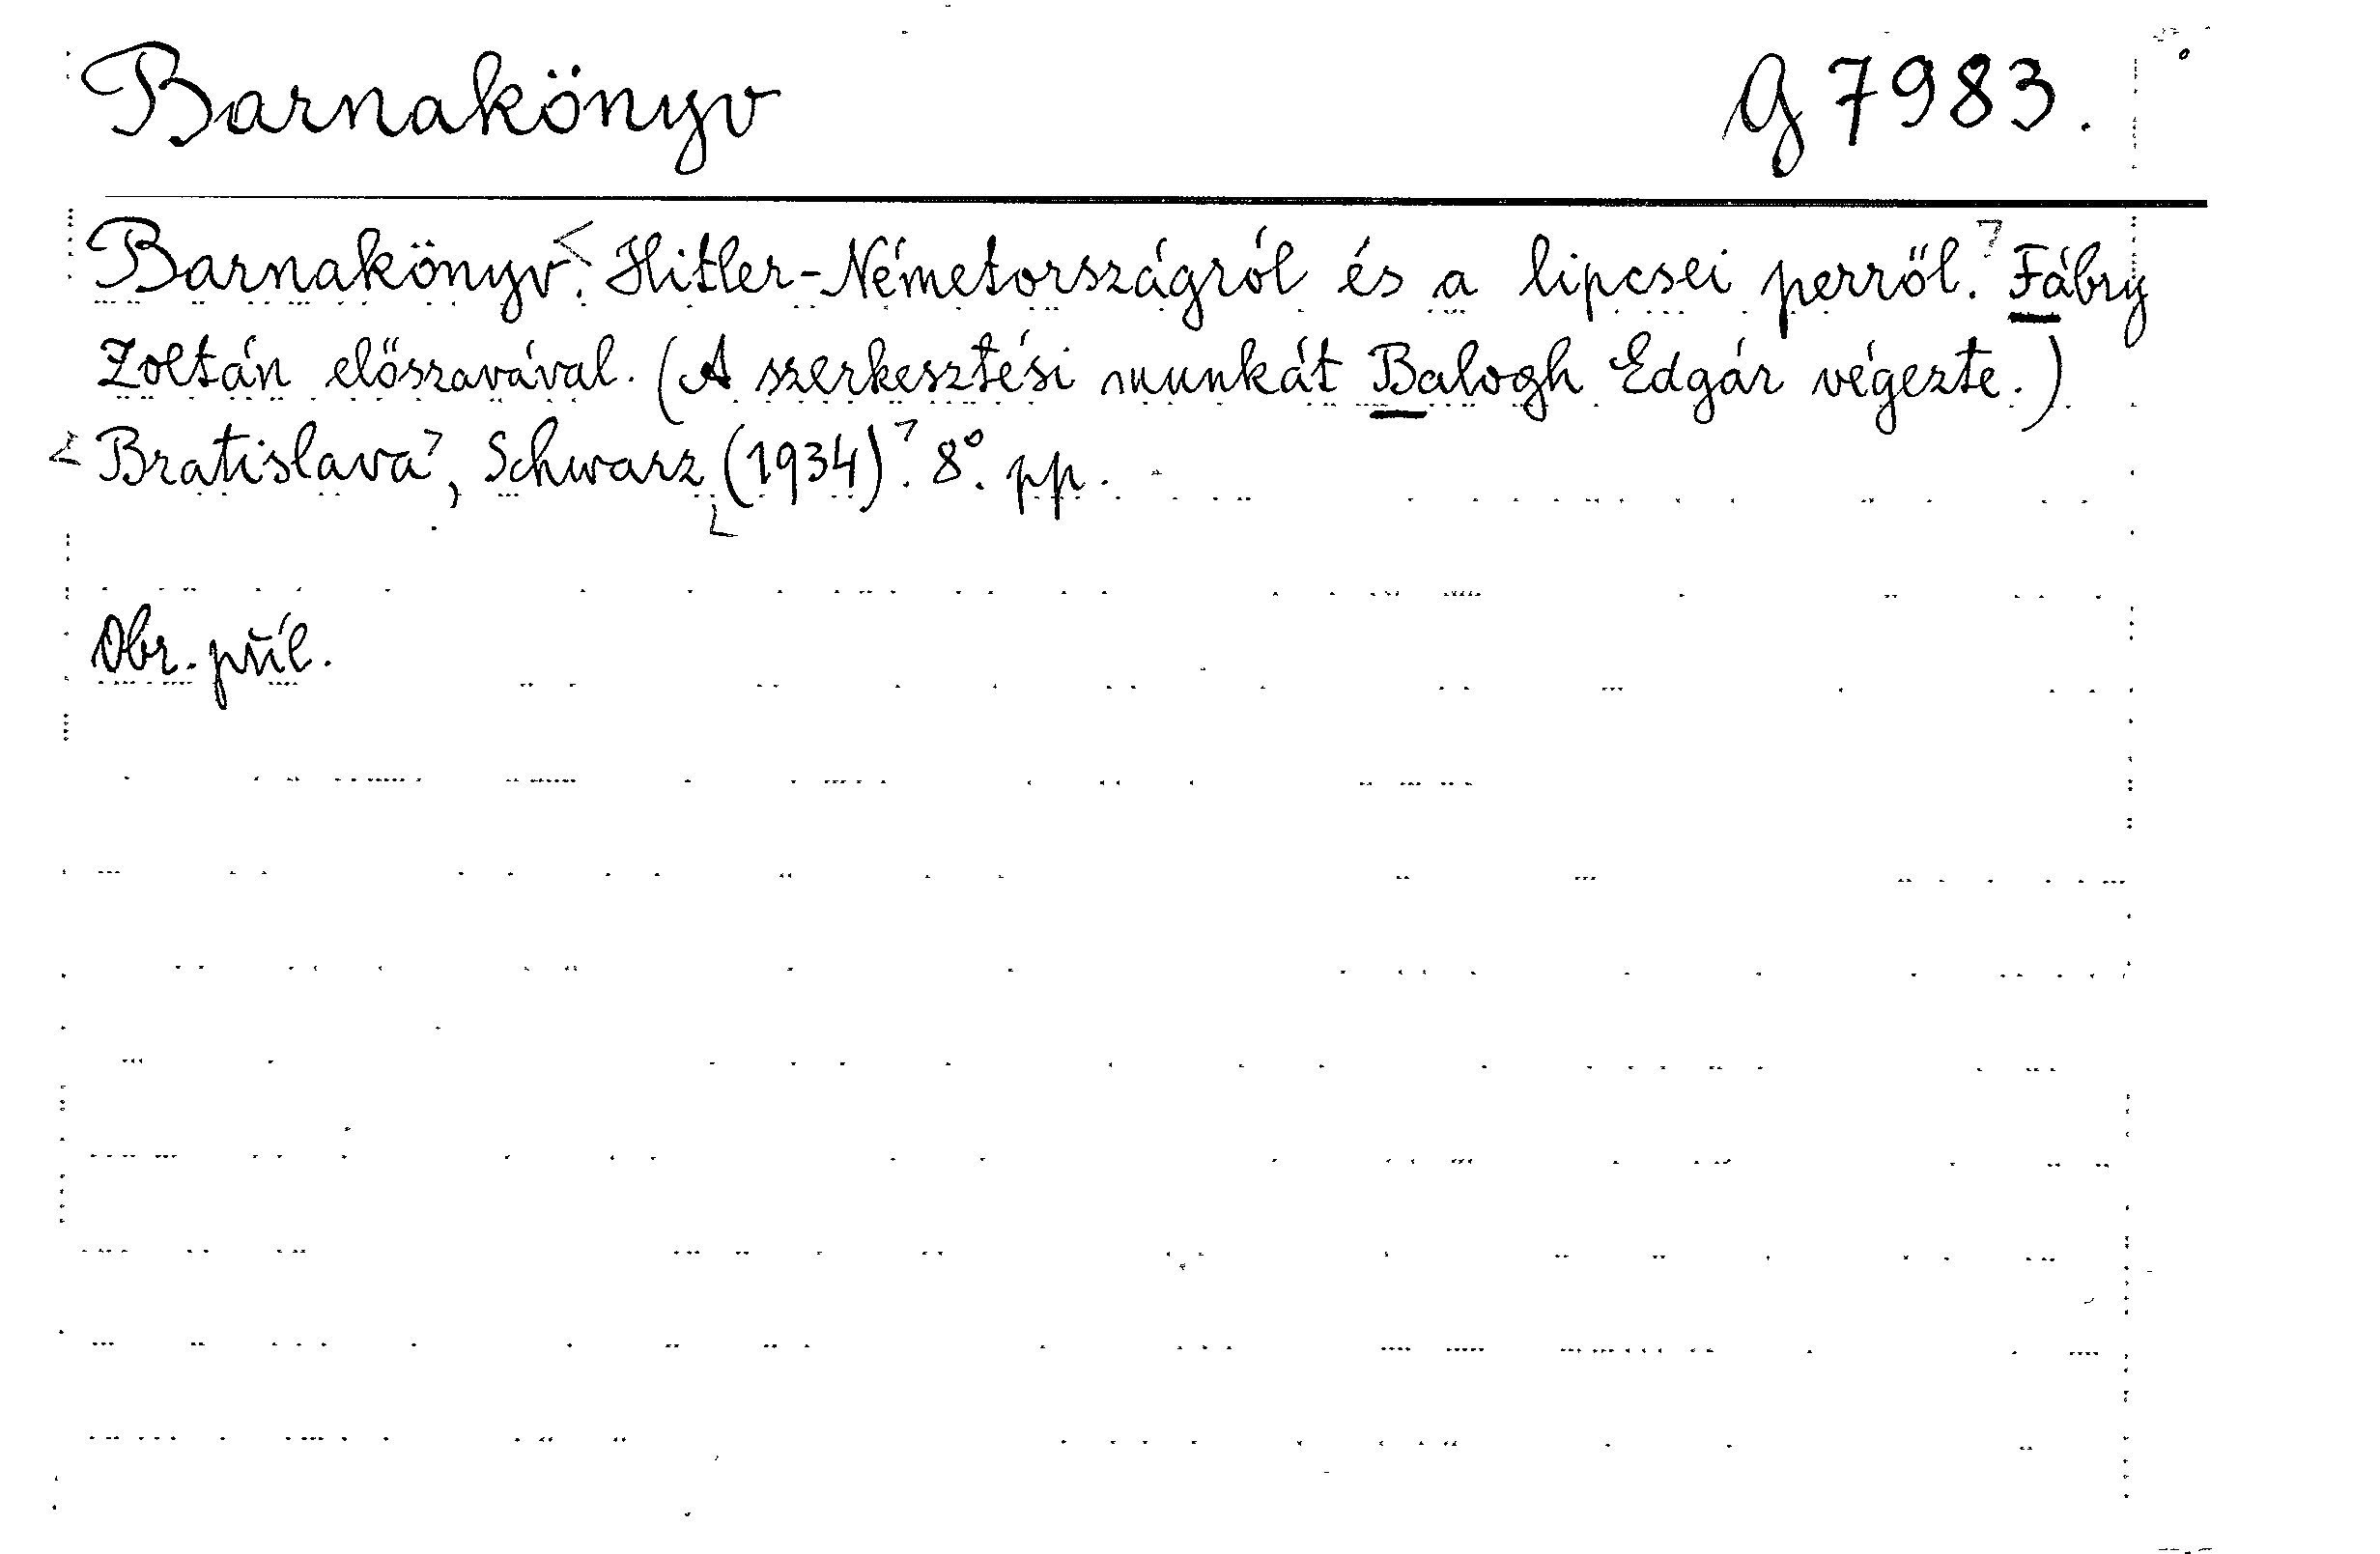 Barnakönyv G 7983.
Barnakönyv. <Hitler-Németországról és a lipcsei perről.> Fábry
Zoltán előszavával. (A szerkesztési munkát Balogh Edgár végezte.)
<Bratislava>, Schwarz <(1934)>. 8°. pp.
Obr. příl.